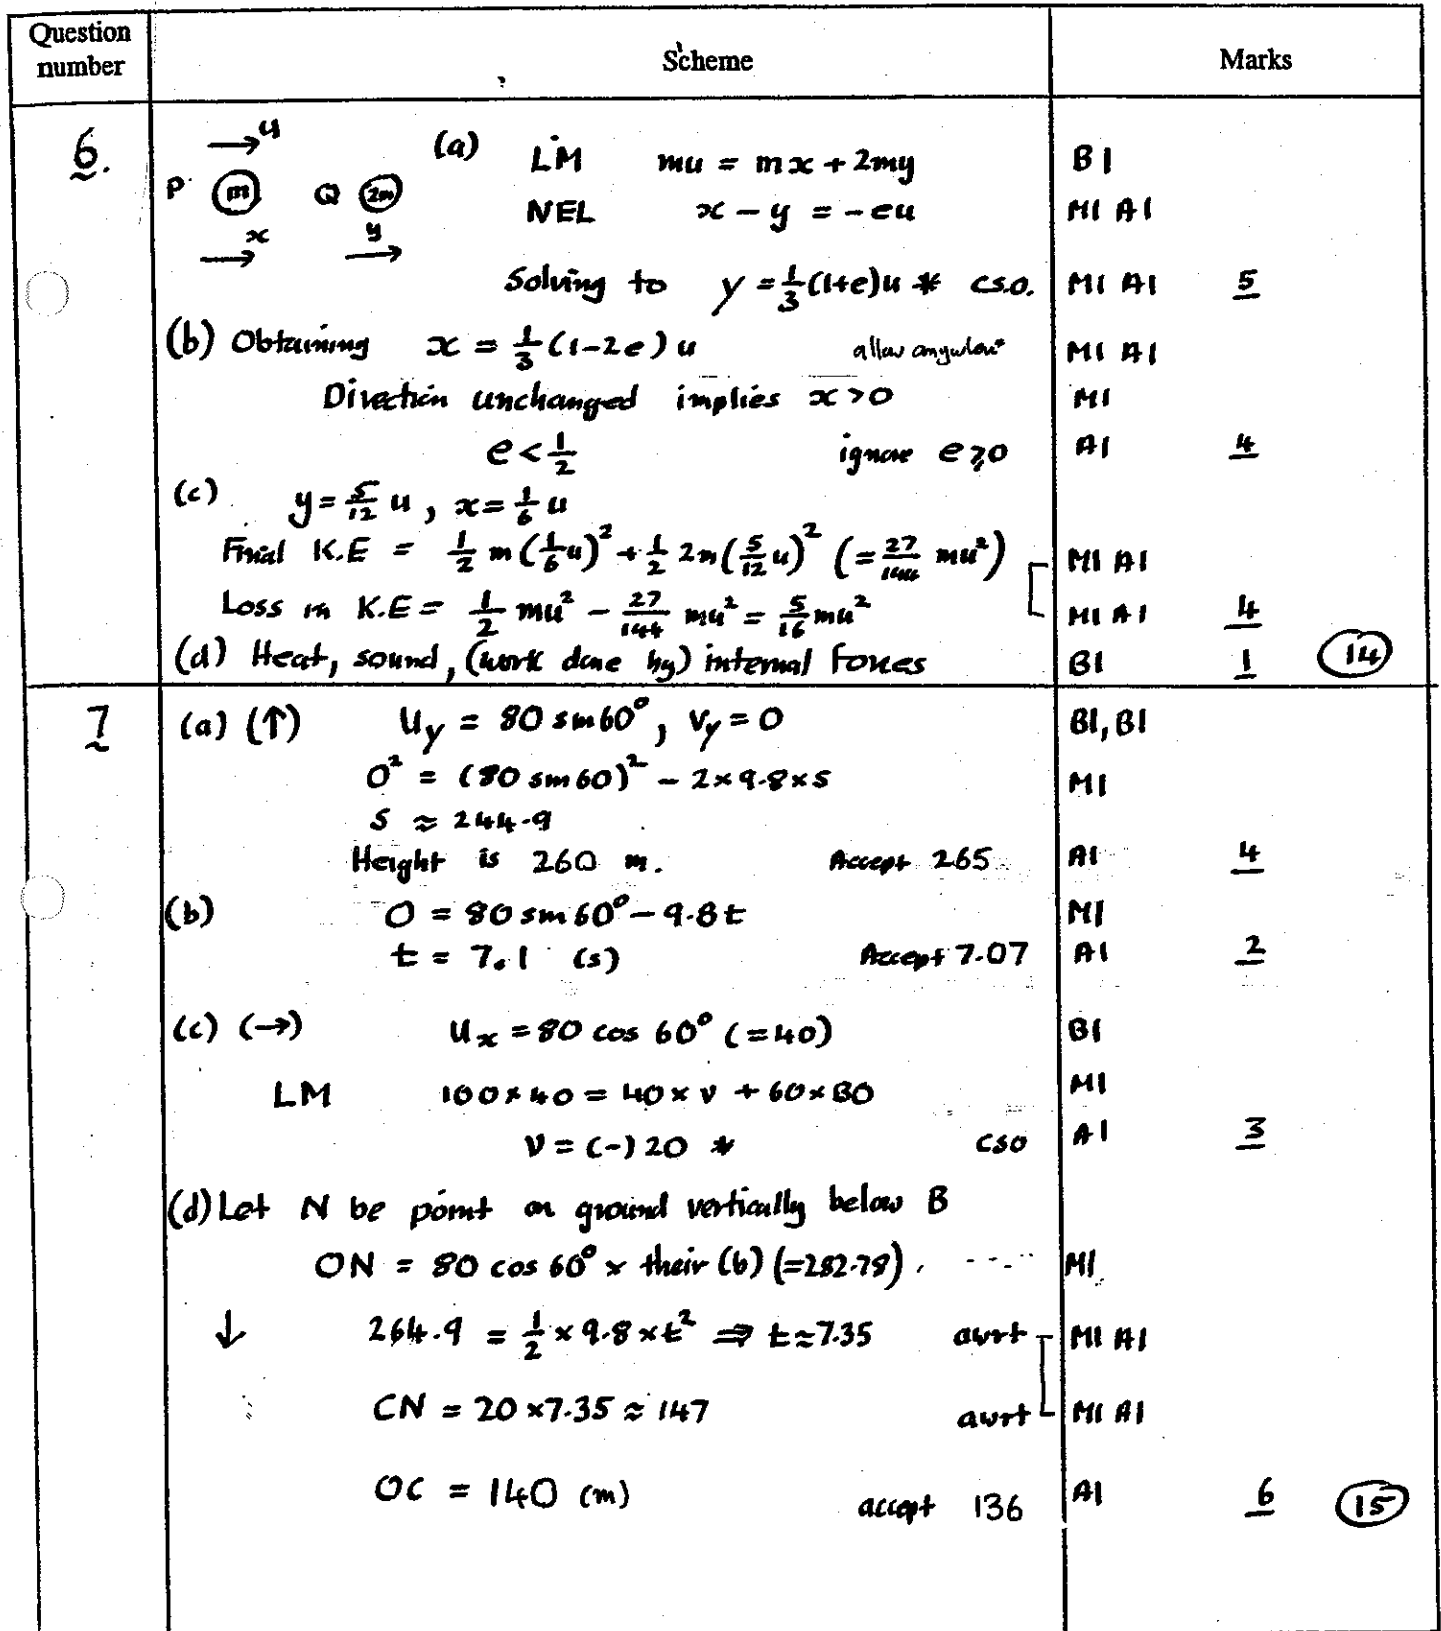 Question number Scheme Marks
6. →u (a) LM mu = mx + 2my B1
P (m) Q (2m) NEL x - y = -eu M1 A1
→x →y
Solving to y = 1/3 (1+e)u * c.s.o. M1 A1 5
(b) Obtaining x = 1/3 (1-2e) u M1 A1
Direction unchanged implies x > 0 M1
e < 1/2 ignore e ≥ 0 A1 4
(c) y = 5/12 u, x = 1/6 u
Final K.E = 1/2 m(1/6 u)² + 1/2 2m(5/12 u)² (= 27/144 mu²) M1 A1
Loss in K.E = 1/2 mu² - 27/144 mu² = 5/16 mu² M1 A1 4
(d) Heat, sound, (work done by) internal forces B1 1 (14)
7 (a) (↑) u_y = 80 sin 60°, v_y = 0 B1, B1
0² = (80 sin 60)² - 2×9.8×s M1
s ≈ 244.9
Height is 260 m. Accept 265 A1 4
(b) 0 = 80 sin 60° - 9.8t M1
t = 7.1 (s) Accept 7.07 A1 2
(c) (→) u_x = 80 cos 60° (=40) B1
LM 100×40 = 40×v + 60×80 M1
v = (-) 20 * cso A1 3
(d) Let N be point on ground vertically below B
ON = 80 cos 60° × their (b) (=282.78) M1
↓ 264.9 = 1/2 × 9.8 × t² ⇒ t ≈ 7.35 awrt M1 A1
CN = 20 × 7.35 ≈ 147 awrt M1 A1
OC = 140 (m) accept 136 A1 6 (15)